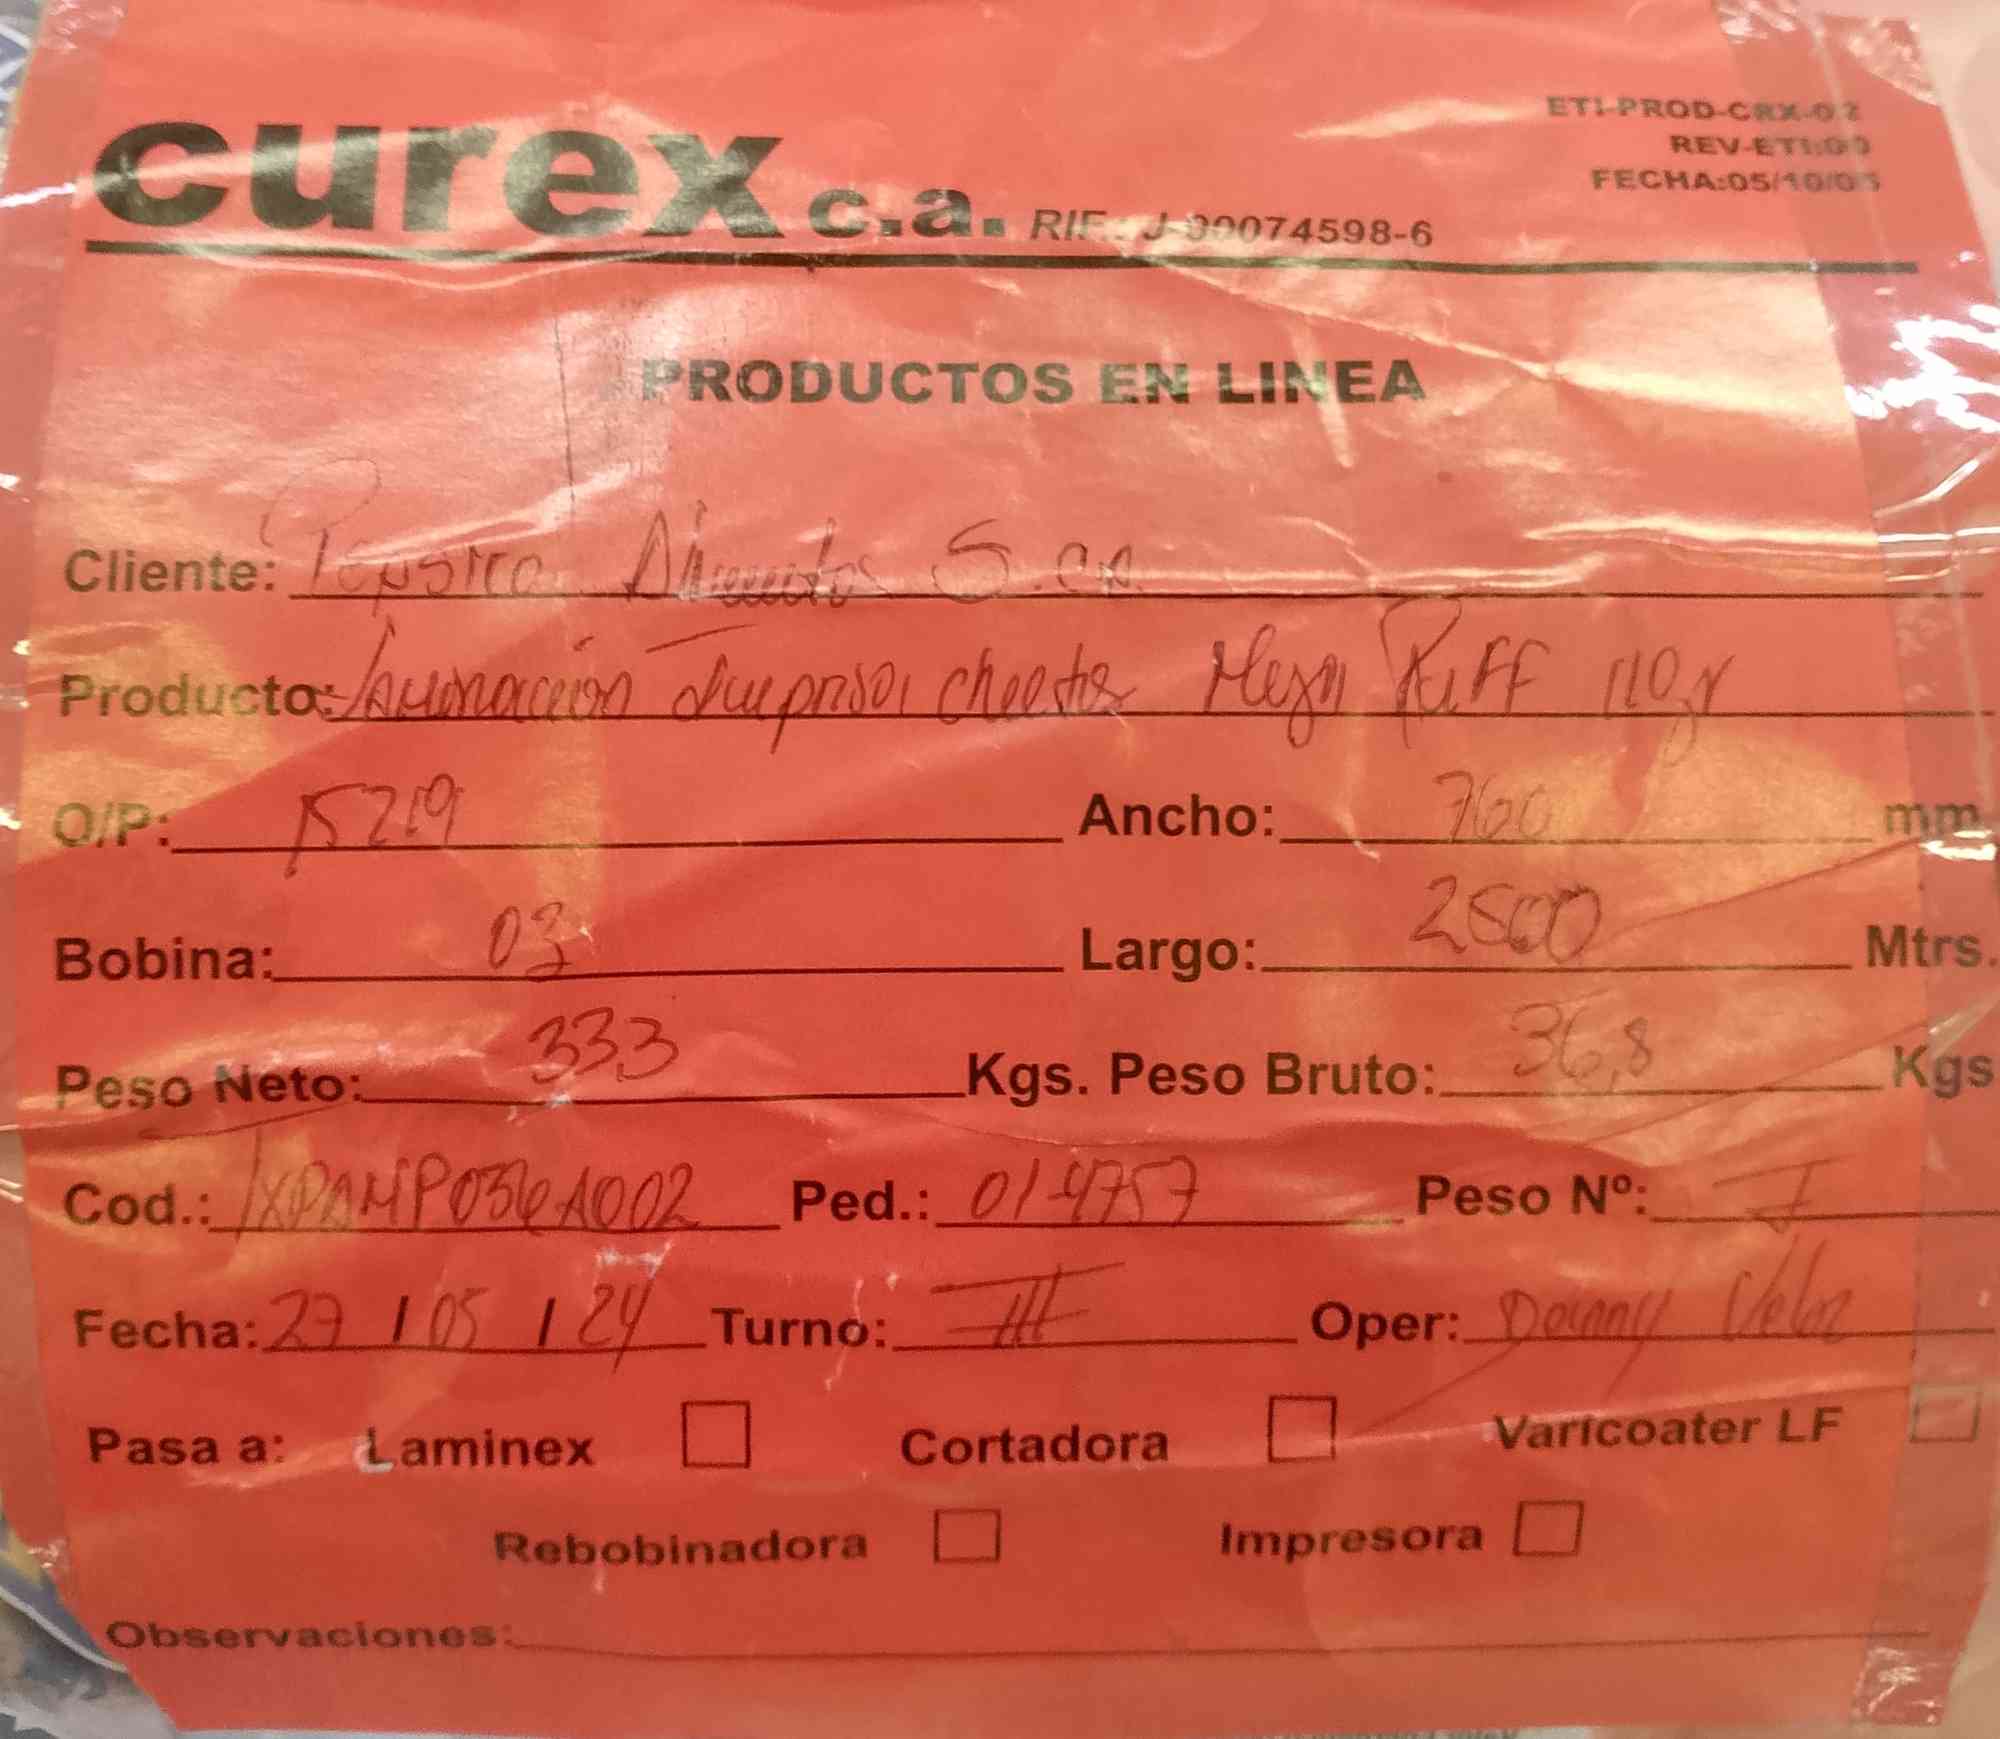 curex c.a. RIF.: J-00074598-6
ETI-PROD-CRX-02
REV-ETI:00
FECHA:05/10/05
PRODUCTOS EN LINEA
Cliente: Pepsico Alimentos S.ca.
Producto: Laminacion Impresa cheetos Mega Puff 110gr
O/P: 15219 Ancho: 760 mm
Bobina: 03 Largo: 2500 Mtrs.
Peso Neto: 33,3 Kgs. Peso Bruto: 36,8 Kgs
Cod.: Ped.: 01-4757 Peso Nº: I
Fecha: 27 / 05 / 24 Turno: III Oper: Danny Veloz
Pasa a: Laminex Cortadora Varicoater LF
Rebobinadora Impresora
Observaciones: